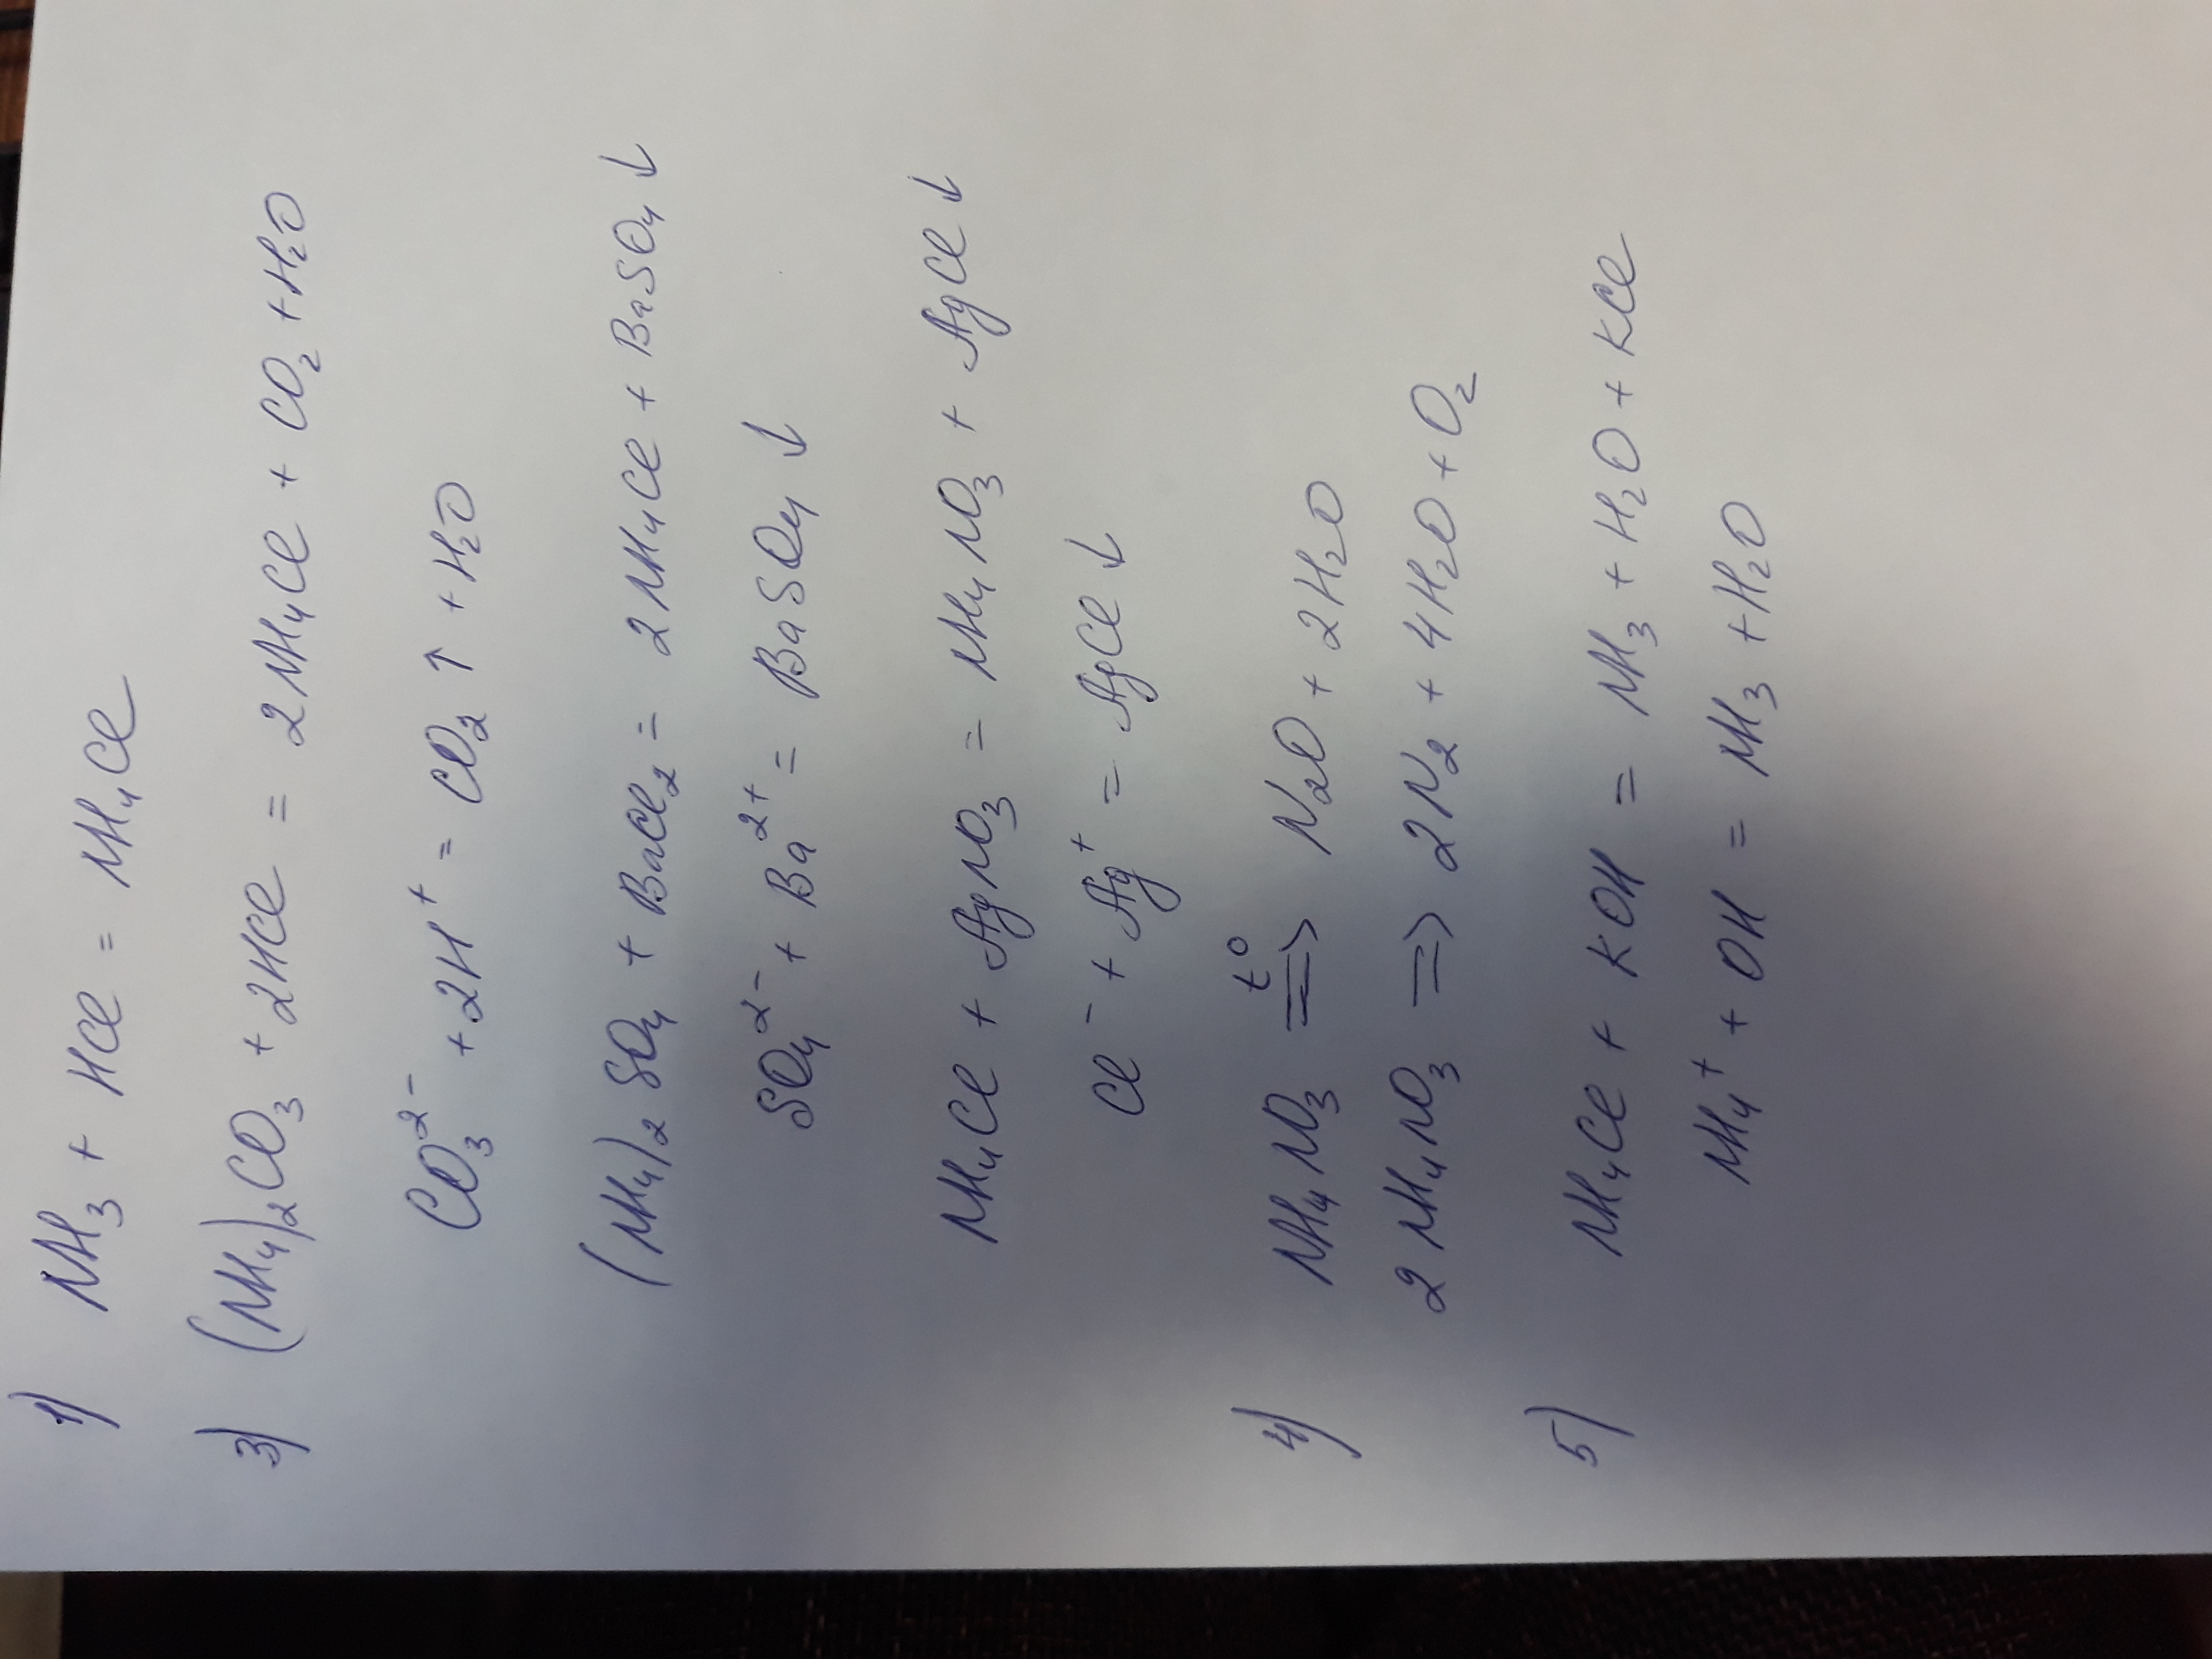 1) NH₃ + HCl = NH₄Cl
3) (NH₄)₂CO₃ + 2HCl = 2NH₄Cl + CO₂ + H₂O
CO₃²⁻ + 2H⁺ = CO₂↑ + H₂O
(NH₄)₂SO₄ + BaCl₂ = 2NH₄Cl + BaSO₄↓
SO₄²⁻ + Ba²⁺ = BaSO₄↓
NH₄Cl + AgNO₃ = NH₄NO₃ + AgCl↓
Cl⁻ + Ag⁺ = AgCl↓
4) NH₄NO₃ =t°=> N₂O + 2H₂O
2NH₄NO₃ => 2N₂ + 4H₂O + O₂
5) NH₄Cl + KOH = NH₃ + H₂O + KCl
NH₄⁺ + OH = NH₃ + H₂O